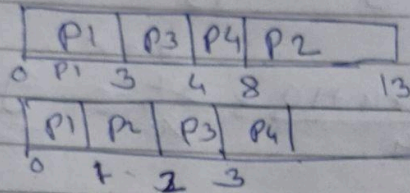 P1 P3 P4 P2
0 P1 3 4 8 13
P1 P2 P3 P4
0 1 2 3